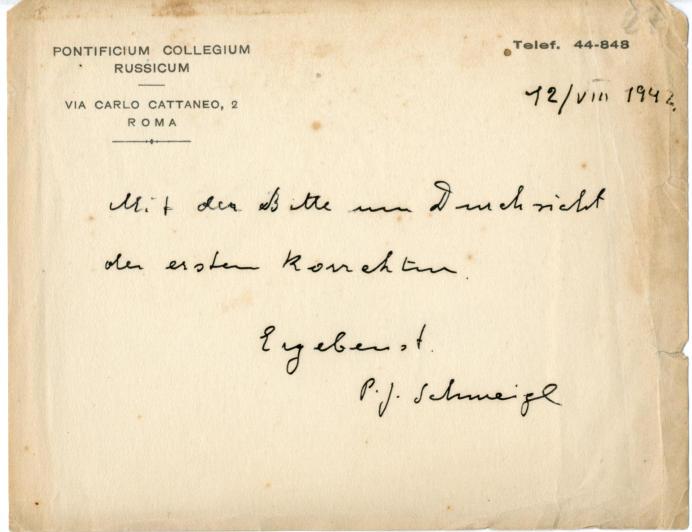 PONTIFICIUM COLLEGIUM
RUSSICUM
VIA CARLO CATTANEO, 2
ROMA
Telef. 44-848
12/VIII 1942.
Mit der Bitte um Durchsicht
der ersten Korrektur.
Ergebenst.
P. J. Schweigl